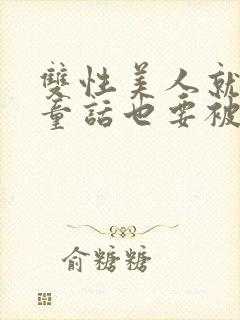 雙性美人就
童話也要被
俞糖糖